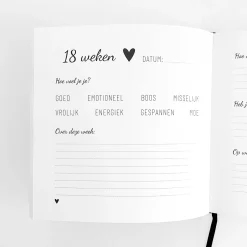 18 weken ♥ DATUM:
Hoe voel je je?
GOED EMOTIONEEL BOOS MISSELIJK
VROLIJK ENERGIEK GESPANNEN MOE
Over deze week:
Hoe
Heb j
Op w